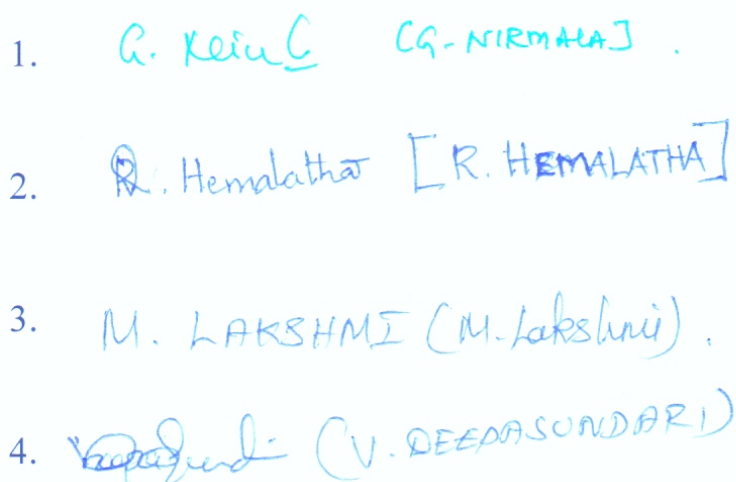 1. G. [G-NIRMALA] .
2. R. Hemalatha [R. HEMALATHA]
3. M. LAKSHMI (M. Lakshmi) .
4. (V. DEEPASUNDARI)